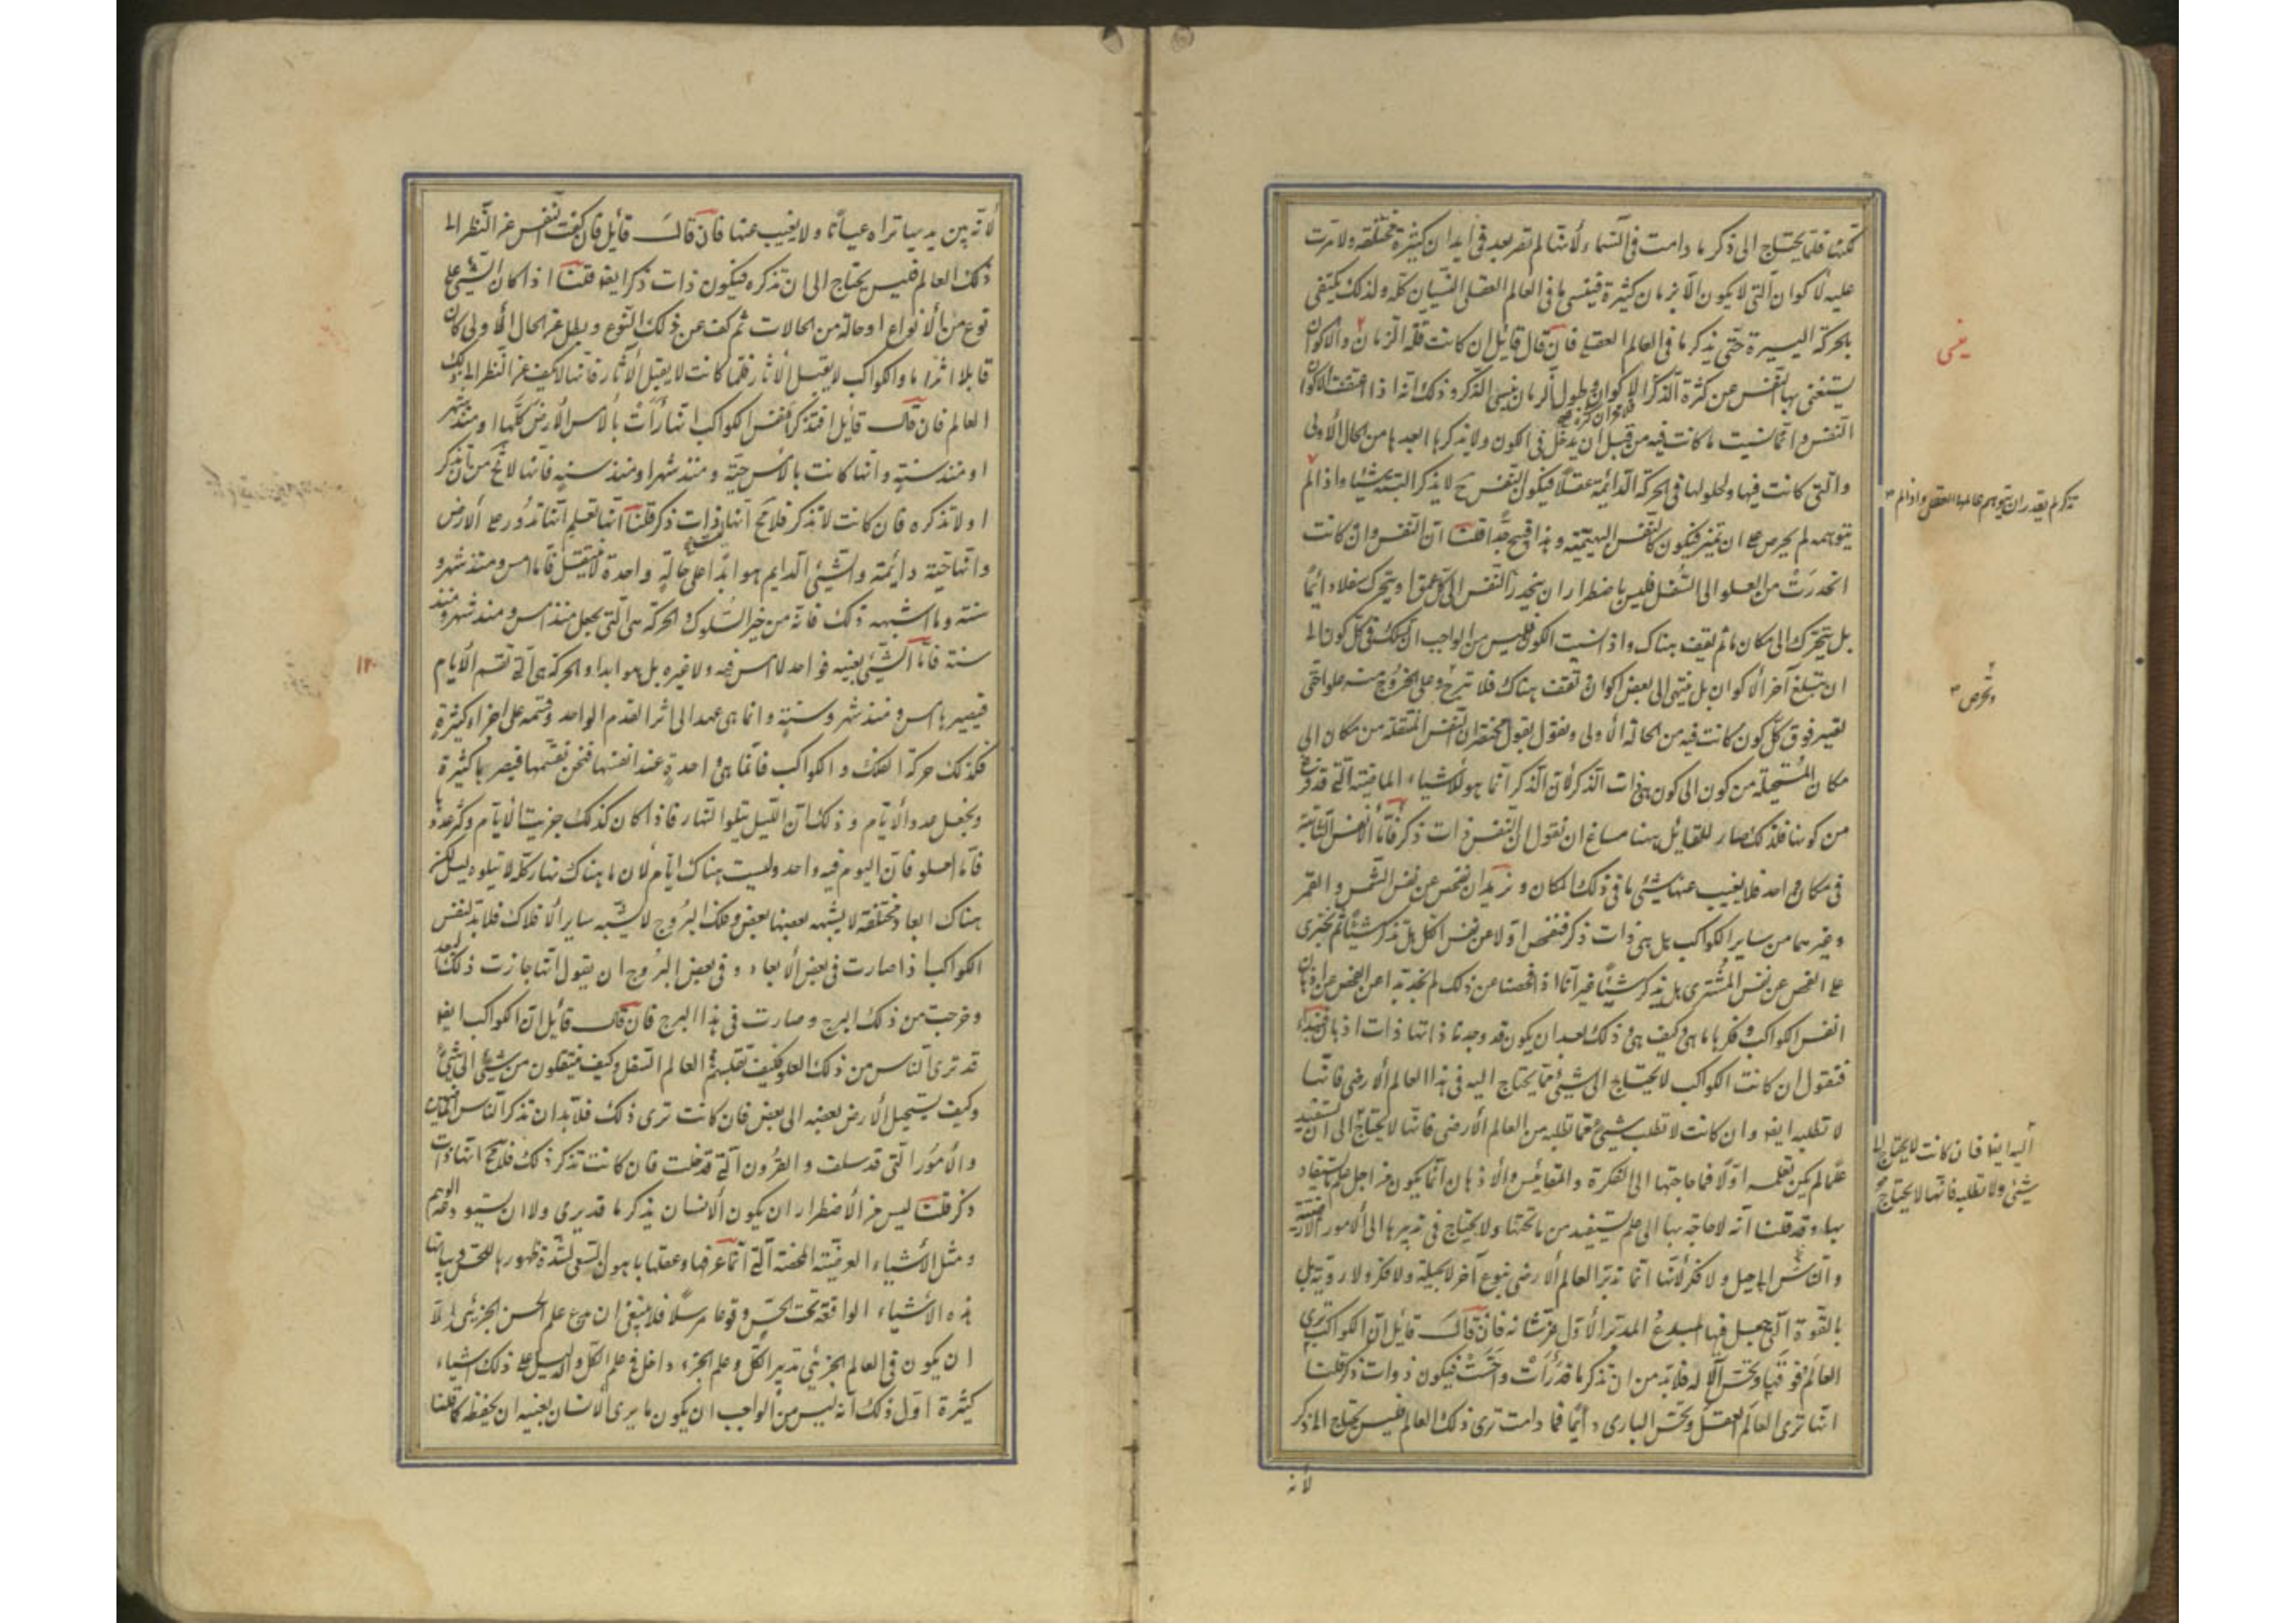 تكنها فلما يحتاج الى ذكر ما دامت فى السماء لأنها لم تصر بعد فى ابدان كثيرة مختلفة ولا مرت
عليه لأكوان التى لا يكون الا بزمان كثيرة فينسى ما فى العالم العقلى النسيان كله ولذلك يكتفى
بالحركة اليسيرة حتى يذكر ما فى العالم العقلى فان قال قائل ان كانت قلة الزمان والأكوان
يستغنى بها النفس عن كثرة الذكر الأكوان وطول الزمان ينسى الذكر وذلك انه اذا اختلفت الأكوان
النفس وانما نسيت ما كانت فيه من قبل ان يدخل فى الكون ولا يذكرها البعدها من الحال الأولى
والتى كانت فيها ولحلولها فى الحركة الدائمة عقلا فيكون النفس ح لا يذكر البتة شيئا واذا لم
يتوهمه لم يحرص على ان تميز فيكون كالنفس البهيمية وهذا قبيح جدا قلنا ان النفس وان كانت
انحدرت من العلو الى السفل فليس باضطرار ان ينحدر النفس الى كل عمق او يتحرك سفلا دائما
بل يتحرك الى مكان ما ثم يقف هناك واذا نسيت الكون فليس من الواجب ان تسلك فى كل كون الى
ان تبلغ آخر الأكوان بل ينتهى الى بعض اكوان تقف هناك فلا تبرح وعلى الخروج منه علوا حتى
تصير فوق كل كون كانت فيه من الحالة الأولى ونقول بقول مختصر ان النفس المنتقلة من مكان الى
مكان المستحيلة من كون الى كون هى ذات الذكر لأن الذكر انما هو للأشياء الماضية التى قد فرغ
من كونها فلذلك صار للقائل ههنا مساغ ان نقول ان النفس ذات ذكر فأما الأنفس الثابتة
فى مكان واحد فلا يغيب عنها شيئ ما فى ذلك المكان ونريد ان نفحص عن نفس الشمس والقمر
وغيرهما من ساير الكواكب هل هى ذات ذكر فنفحص اولا عن نفس الكل هل تذكر شيئا ثم نجترى
على الفحص عن نفس المشترى هل يذكر شيئا غير انا اذا فحصنا عن ذلك لم نجد بدا من الفحص عن اذهان
انفس الكواكب وفكرها ما هى وكيف هى وذلك بعد ان يكون قد وجدنا ذاتها ذات اذهان فنبدأ
فنقول ان كانت الكواكب لا يحتاج الى شيئ مما يحتاج اليه فى هذا العالم الأرضى فانها
لا تطلبه ايضا وان كانت لا تطلب شيئ مما تطلبه من العالم الأرضى فانها لا يحتاج الى ان تستفيد
علما لم يكن تعلمه اولا فما حاجتها الى الفكرة والمقائيس والأذهان انما يكون من اجل علم يستفاد
بها وقد قلنا انه لا حاجة بها الى علم تستفيد من ما تحتها ولا يحتاج فى تدبيرها الى الأمور الأرضية
والناس الى حيل ولا فكر لأنها انما تدبر العالم الأرضى بنوع آخر لا بحيلة ولا فكر ولا روية بل
بالقوة التى جعل فيها المبدع المدبر الأول عز شانه فان قال قائل ان الكواكب ترى
العالم فوقها وتحس الاله فلا بد من ان تذكر ما قد رأت واحست فيكون ذوات ذكر قلنا
انها ترى العالم العقلى وتحس البارى دائما فما دامت ترى ذلك العالم فليس يحتاج الى ذكر
لأنه
ينسى
تذكر لم يقدر ان يتوهم عالمها العقلى واذا لم
وتحرص
اليه ايضا فان كانت لا يحتاج الى
شيئ ولا تطلبه فانها لا يحتاج
لأنه بين يديها تراه عيانا ولا يغيب عنها فان قال قائل فان كفت النفس عن النظر الى
ذلك العالم فليس يحتاج الى ان تذكره فيكون ذات ذكر ايضا قلنا اذا كان الشيئ على
نوع من الأنواع او حالة من الحالات ثم كف عن ذلك النوع وبطل عن الحال الأولى كان
قابلا اثرا ما والكواكب لا يقبل الأثار فلما كانت لا يقبل الأثار فانها لا تكف عن النظر الى ذلك
العالم فان قال قائل افتذكر انفس الكواكب انها رأت بالامس الأرض كلها او منذ شهر
او منذ سنة وانها كانت بالأمس حية ومنذ شهر او منذ سنة فانها لا تخ من ان تذكر
او لا تذكره فان كانت لا تذكر فلا مح انها ذات ذكر قلنا انها تعلم انها تدور على الأرض
وانها حية دائمة والشيئ الدايم هو ابدا على حالة واحدة لا ينتقل فاما امس ومنذ شهر و
سنة وما اشبهه ذلك فانه من حيز السلوك والحركة هى التى يجعل منذ امس ومنذ شهر ومنذ
سنة فأما الشيئ بعينه فواحد لا امس فيه ولا غيره بل هو ابدا والحركة هى التى تقسم الأيام
فيصيرها امس ومنذ شهر وسنة وانما هى عمد الى اثر القدم الواحد وقسمه على اجزاء كثيرة
فكذلك حركة الفلك والكواكب فانما هى واحدة عند انفسها فنحن نقسمها فيصيرها كثيرة
ونجعل عدد الأيام وذلك ان الليل يتلوا النهار فاذا كان كذلك جزيت الأيام وكثر عددها
فاما العلو فان اليوم فيه واحد وليست هناك ايام لأن ما هناك نهار كله لا يتلوه ليل لكن
هناك ابعاد مختلفة لا يشبه بعضها بعض وفلك البروج لا يشبه ساير الأفلاك فلا بد لنفس
الكواكب اذا صارت فى بعض الأبعاد وفى بعض البروج ان يقول انها جازت ذلك البعد
وخرجت من ذلك البرج وصارت فى هذا البرج فان قال قائل ان الكواكب ايضا
قد ترى الناس من ذلك العلو فكيف تقلبهم فى العالم السفلى وكيف ينتقلون من شيئ الى شيئ
وكيف يستحيل الأرض بعضه الى بعض فان كانت ترى ذلك فلا بد ان تذكر الناس الماضين
والأمور التى قد سلفت والقرون التى قد خلت فان كانت تذكر ذلك فلا مح انها ذات
ذكر قلنا ليس من الأضطرار ان يكون الأنسان يذكر ما قد يرى ولا ان يستودعه الوهم
ومثل الأشياء العرضية المحضة التى انما عرفها وعقلها باهون السعى لشدة ظهورها للحس وبيانها
هذه الأشياء الواقعة تحت الحس وقوعا مرسلا فلا ينبغى ان يدع علم الحس الجزئى الا
ان يكون فى العالم الجزئى تدبير الكل وعلم الجزء داخل فى علم الكل والدليل على ذلك اشياء
كثيرة اول ذلك انه ليس من الواجب ان يكون ما يرى الأنسان بعينه ان يحفظ كما قلنا
١٢٠